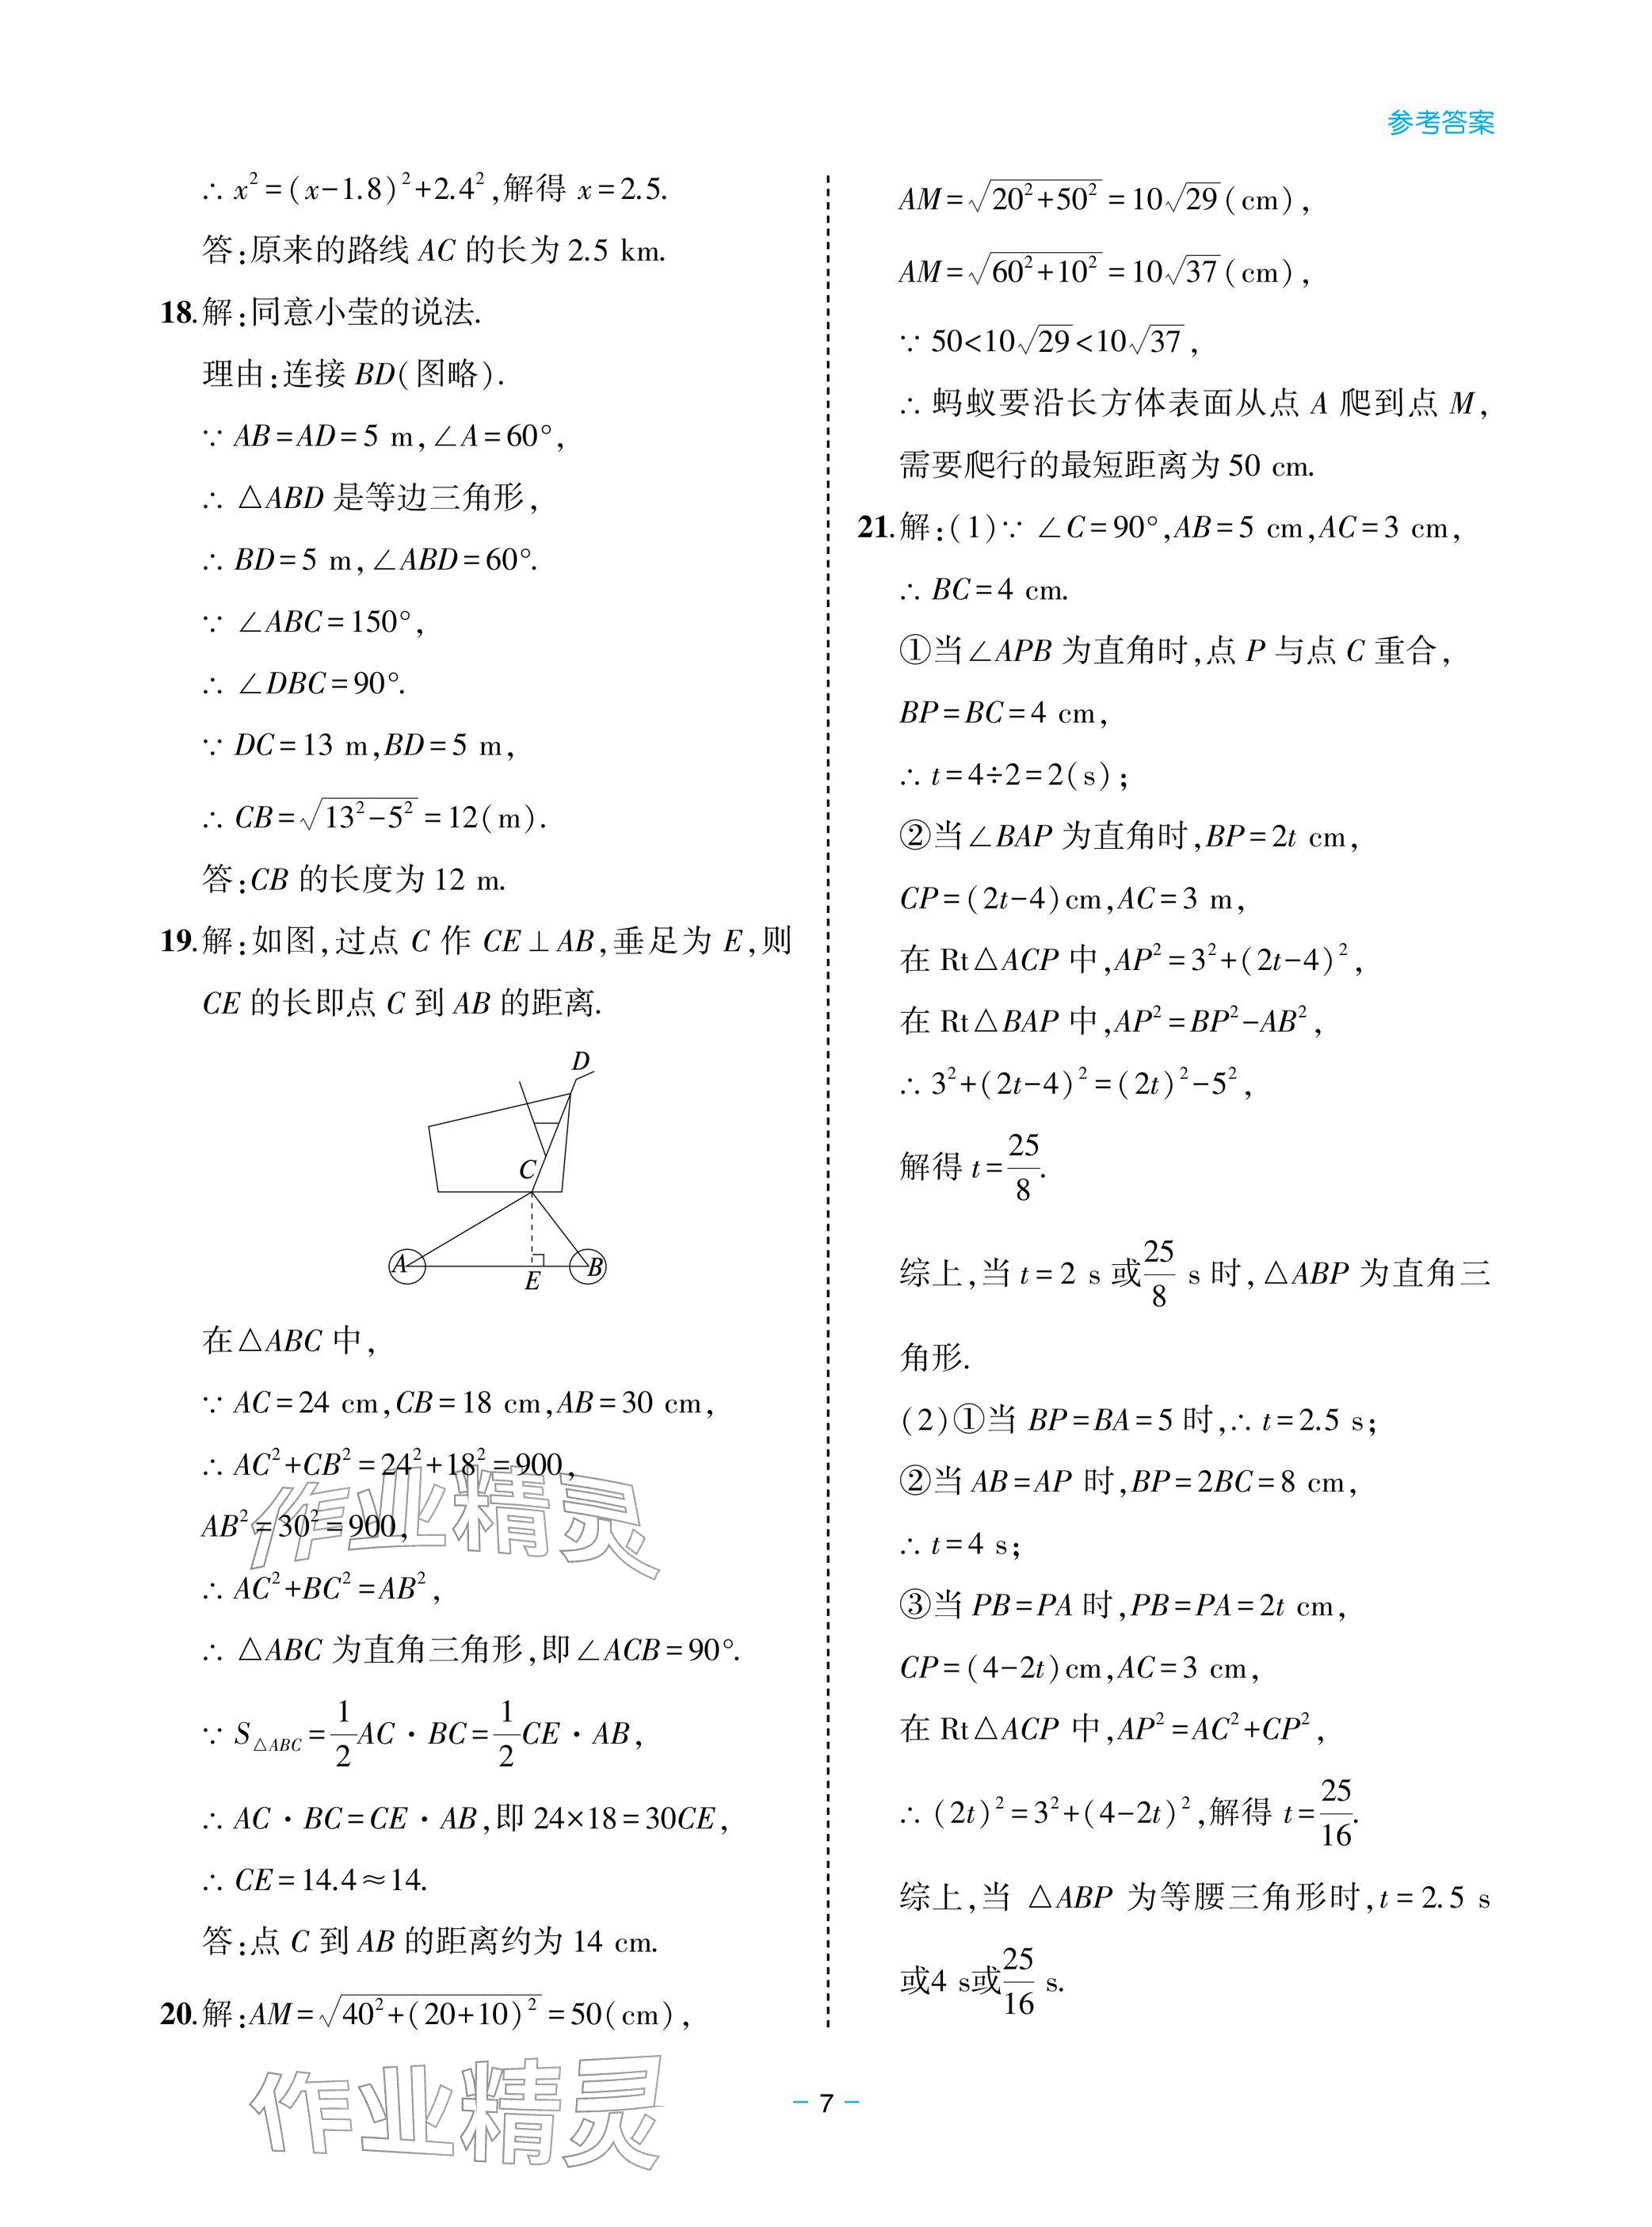 参考答案
∴ x²=(x-1.8)²+2.4²,解得 x=2.5.
答:原来的路线 AC 的长为 2.5 km.
18.解:同意小莹的说法.
理由:连接 BD(图略).
∵ AB=AD=5 m,∠A=60°,
∴ △ABD 是等边三角形,
∴ BD=5 m,∠ABD=60°.
∵ ∠ABC=150°,
∴ ∠DBC=90°.
∵ DC=13 m,BD=5 m,
∴ CB=√(13²-5²)=12(m).
答:CB 的长度为 12 m.
19.解:如图,过点 C 作 CE⊥AB,垂足为 E,则
CE 的长即点 C 到 AB 的距离.
D
C
A
E
B
在△ABC 中,
∵ AC=24 cm,CB=18 cm,AB=30 cm,
∴ AC²+CB²=24²+18²=900,
AB²=30²=900,
∴ AC²+BC²=AB²,
∴ △ABC 为直角三角形,即∠ACB=90°.
∵ S△ABC=1/2AC·BC=1/2CE·AB,
∴ AC·BC=CE·AB,即 24×18=30CE,
∴ CE=14.4≈14.
答:点 C 到 AB 的距离约为 14 cm.
20.解:AM=√(40²+(20+10)²)=50(cm),
AM=√(20²+50²)=10√29(cm),
AM=√(60²+10²)=10√37(cm),
∵ 50<10√29<10√37,
∴ 蚂蚁要沿长方体表面从点 A 爬到点 M,
需要爬行的最短距离为 50 cm.
21.解:(1)∵ ∠C=90°,AB=5 cm,AC=3 cm,
∴ BC=4 cm.
①当∠APB 为直角时,点 P 与点 C 重合,
BP=BC=4 cm,
∴ t=4÷2=2(s);
②当∠BAP 为直角时,BP=2t cm,
CP=(2t-4)cm,AC=3 m,
在 Rt△ACP 中,AP²=3²+(2t-4)²,
在 Rt△BAP 中,AP²=BP²-AB²,
∴ 3²+(2t-4)²=(2t)²-5²,
解得 t=25/8.
综上,当 t=2 s 或25/8 s 时,△ABP 为直角三
角形.
(2)①当 BP=BA=5 时,∴ t=2.5 s;
②当 AB=AP 时,BP=2BC=8 cm,
∴ t=4 s;
③当 PB=PA 时,PB=PA=2t cm,
CP=(4-2t)cm,AC=3 cm,
在 Rt△ACP 中,AP²=AC²+CP²,
∴ (2t)²=3²+(4-2t)²,解得 t=25/16.
综上,当 △ABP 为等腰三角形时,t=2.5 s
或4 s或25/16 s.
作业精灵
作业精灵
- 7 -